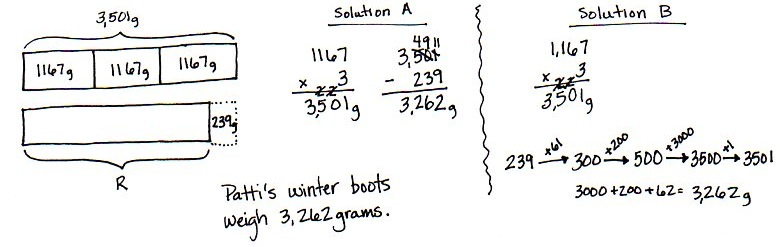 3,501g
1167g 1167g 1167g
239g
R
Solution A
1167
x 3
22
3,501g
4 9 11
3,501
- 239
3,262g
Patti's winter boots
weigh 3,262 grams.
Solution B
1,167
x 3
22
3,501g
+61 +200 +3000 +1
239 → 300 → 500 → 3500 → 3501
3000 + 200 + 62 = 3,262g